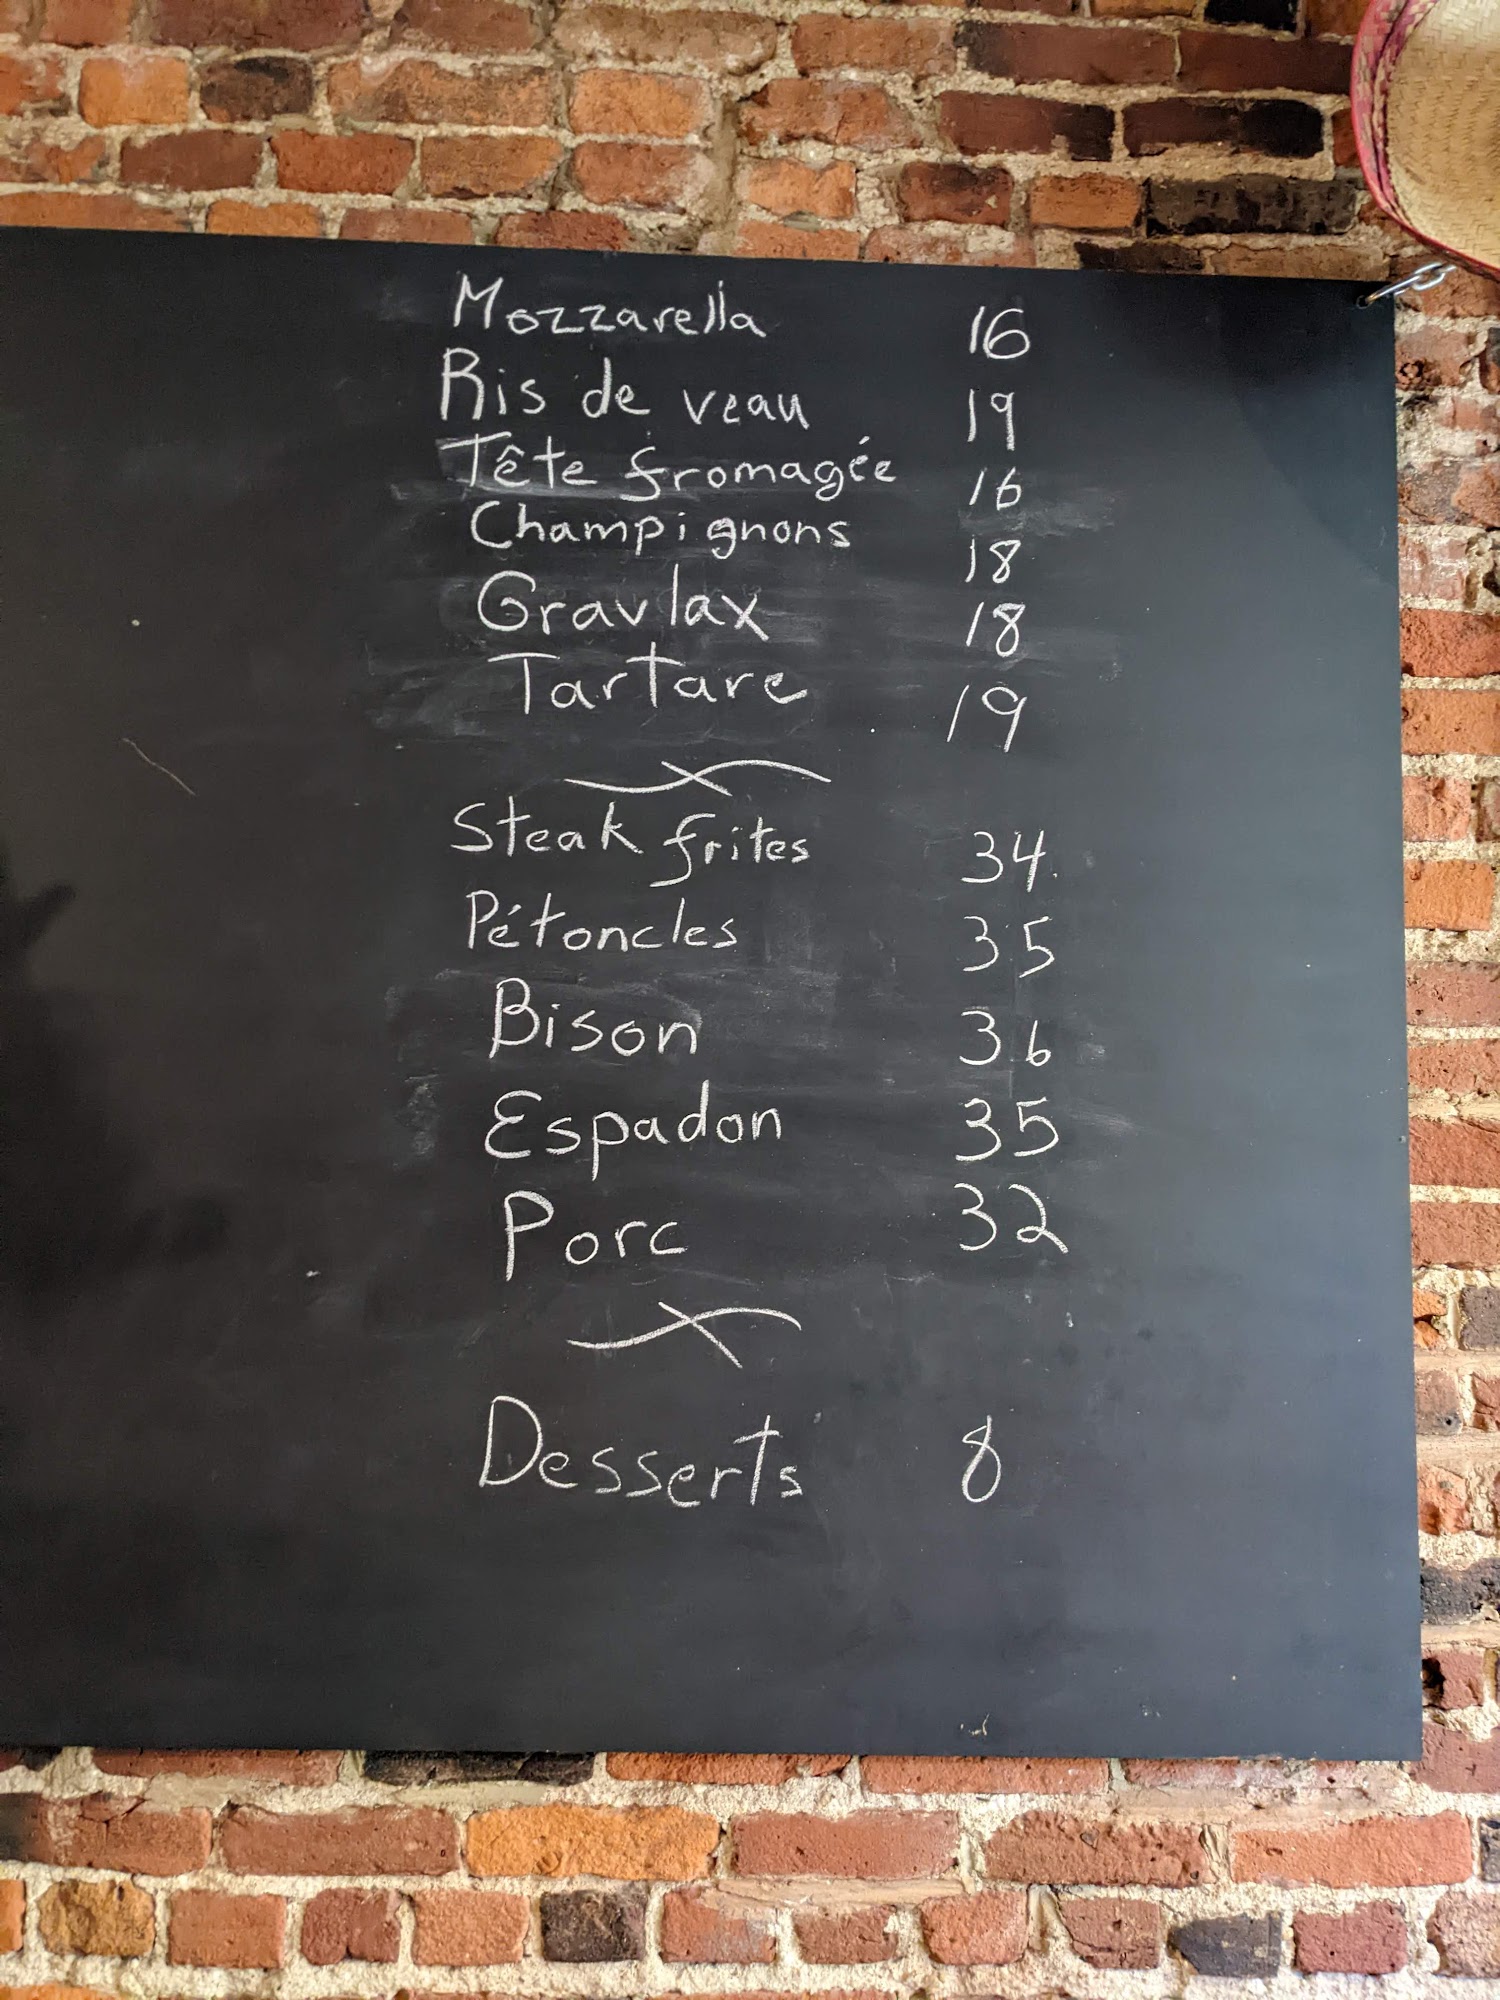 Mozzarella 16
Ris de veau 19
Tête fromagée 16
Champignons 18
Gravlax 18
Tartare 19
Steak frites 34
Pétoncles 35
Bison 36
Espadon 35
Porc 32
Desserts 8